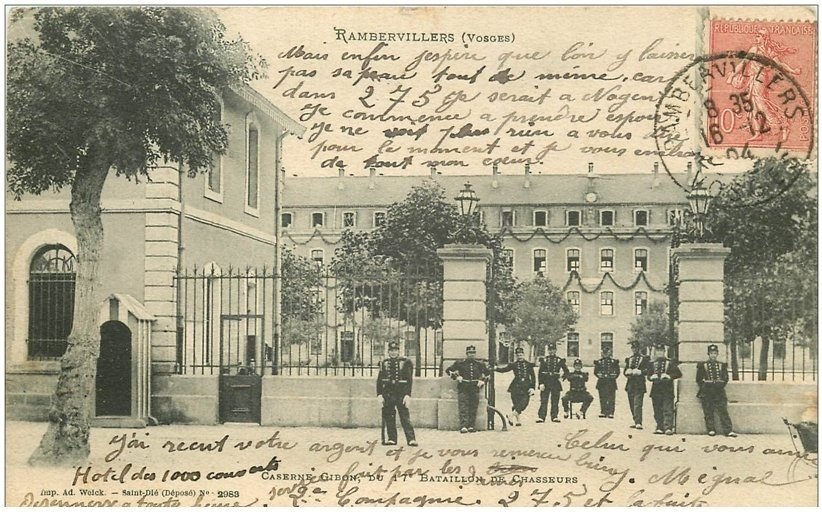 RAMBERVILLERS (VOSGES)
Mais enfin j'espère que l'on y laisser
pas sa peau tout de même, car
dans 275 je serait à Nogen
Je commence a prendre espoi
je ne voit plus rien a vous
pour le moment et je vous
de tout mon coeur
REPUBLIQUE FRANCAISE
POSTES
10
RAMBERVILLERS
8 35
16 12
04
J'ai recut votre argent et je vous remercie bien. Celui qui vous aime
Hotel des 1000 couverts
CASERNE GIBON, DU 17e BATAILLON DE CHASSEURS
fait par les Mignal
Imp. Ad. Weick. — Saint-Dié (Déposé) No 2983
Compagnie. 275 et la fuite